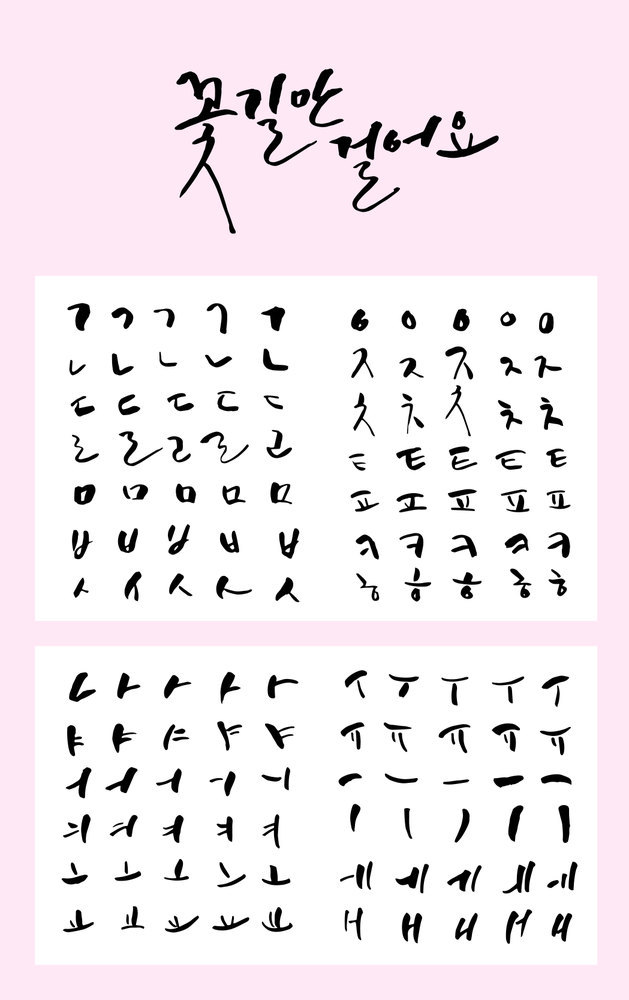 꽃길만
걸어요
ㄱ ㄱ ㄱ ㄱ ㄱ
ㄴ ㄴ ㄴ ㄴ ㄴ
ㄷ ㄷ ㄷ ㄷ ㄷ
ㄹ ㄹ ㄹ ㄹ ㄹ
ㅁ ㅁ ㅁ ㅁ ㅁ
ㅂ ㅂ ㅂ ㅂ ㅂ
ㅅ ㅅ ㅅ ㅅ ㅅ
ㅇ ㅇ ㅇ ㅇ ㅇ
ㅈ ㅈ ㅈ ㅈ ㅈ
ㅊ ㅊ ㅊ ㅊ ㅊ
ㅌ ㅌ ㅌ ㅌ ㅌ
ㅍ ㅍ ㅍ ㅍ ㅍ
ㅋ ㅋ ㅋ ㅋ ㅋ
ㅎ ㅎ ㅎ ㅎ ㅎ
ㅏ ㅏ ㅏ ㅏ ㅏ
ㅑ ㅑ ㅑ ㅑ ㅑ
ㅓ ㅓ ㅓ ㅓ ㅓ
ㅕ ㅕ ㅕ ㅕ ㅕ
ㅗ ㅗ ㅗ ㅗ ㅗ
ㅛ ㅛ ㅛ ㅛ ㅛ
ㅜ ㅜ ㅜ ㅜ ㅜ
ㅠ ㅠ ㅠ ㅠ ㅠ
ㅡ ㅡ ㅡ ㅡ ㅡ
ㅣ ㅣ ㅣ ㅣ ㅣ
ㅔ ㅔ ㅔ ㅔ ㅔ
ㅐ ㅐ ㅐ ㅐ ㅐ